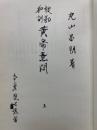 丸山昌朗著
校勘
和訓
黄帝素問
上